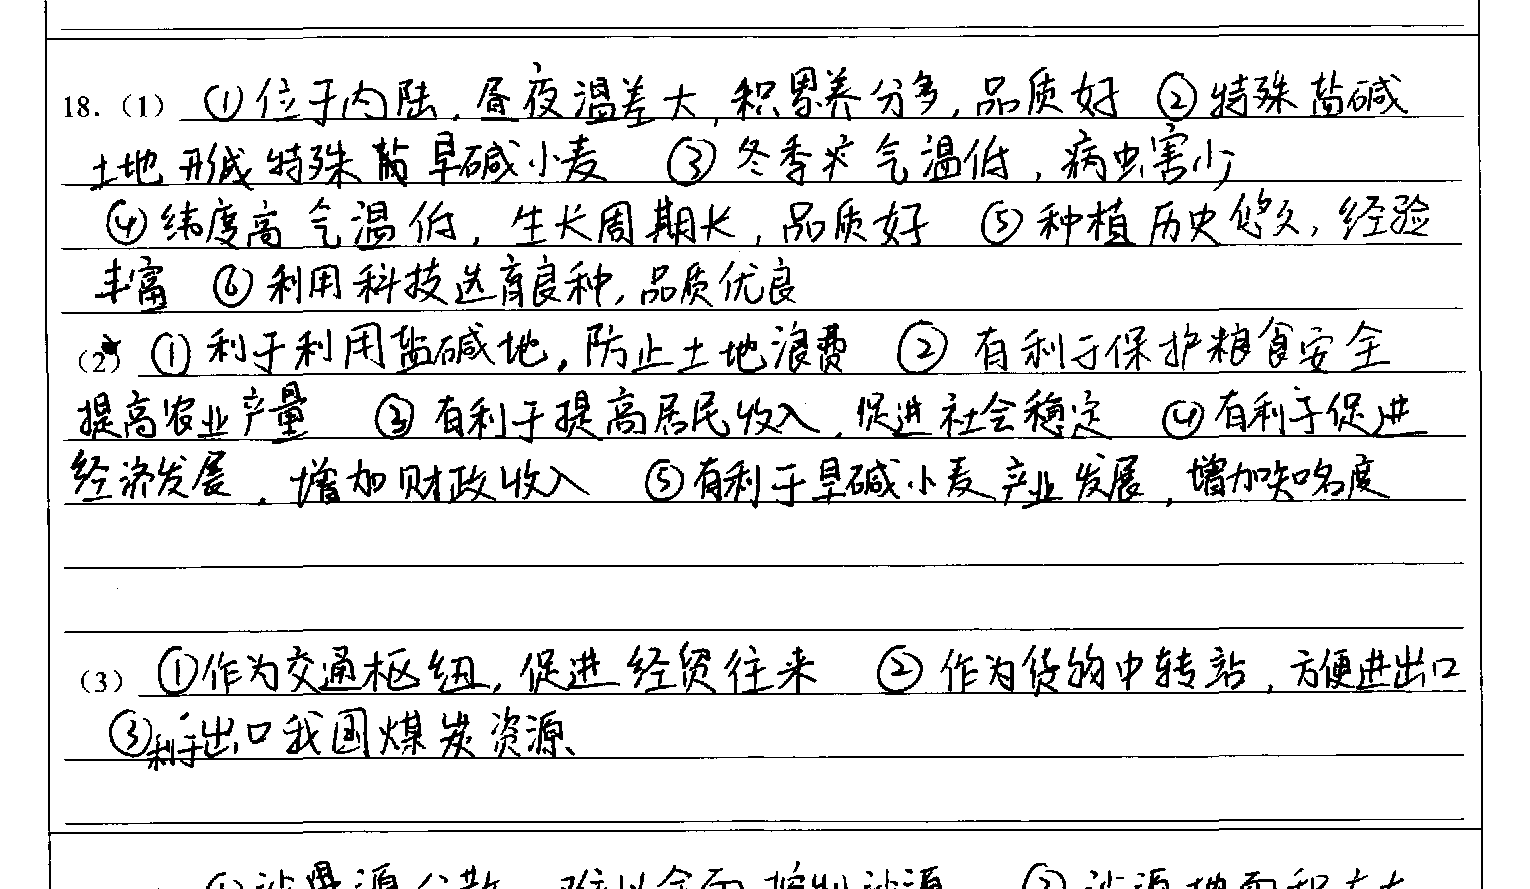 18.（1）①位于内陆，昼夜温差大，积累养分多，品质好 ②特殊盐碱
土地形成特殊旱碱小麦 ③冬季气温低，病虫害少
④纬度高气温低，生长周期长，品质好 ⑤种植历史悠久，经验
丰富 ⑥利用科技选育良种，品质优良
（2）①利于利用盐碱地，防止土地浪费 ②有利于保护粮食安全
提高农业产量 ③有利于提高居民收入，促进社会稳定 ④有利于促进
经济发展，增加财政收入 ⑤有利于旱碱小麦产业发展，增加知名度
（3）①作为交通枢纽，促进经贸往来 ②作为货物中转站，方便进出口
③利于出口我国煤炭资源、